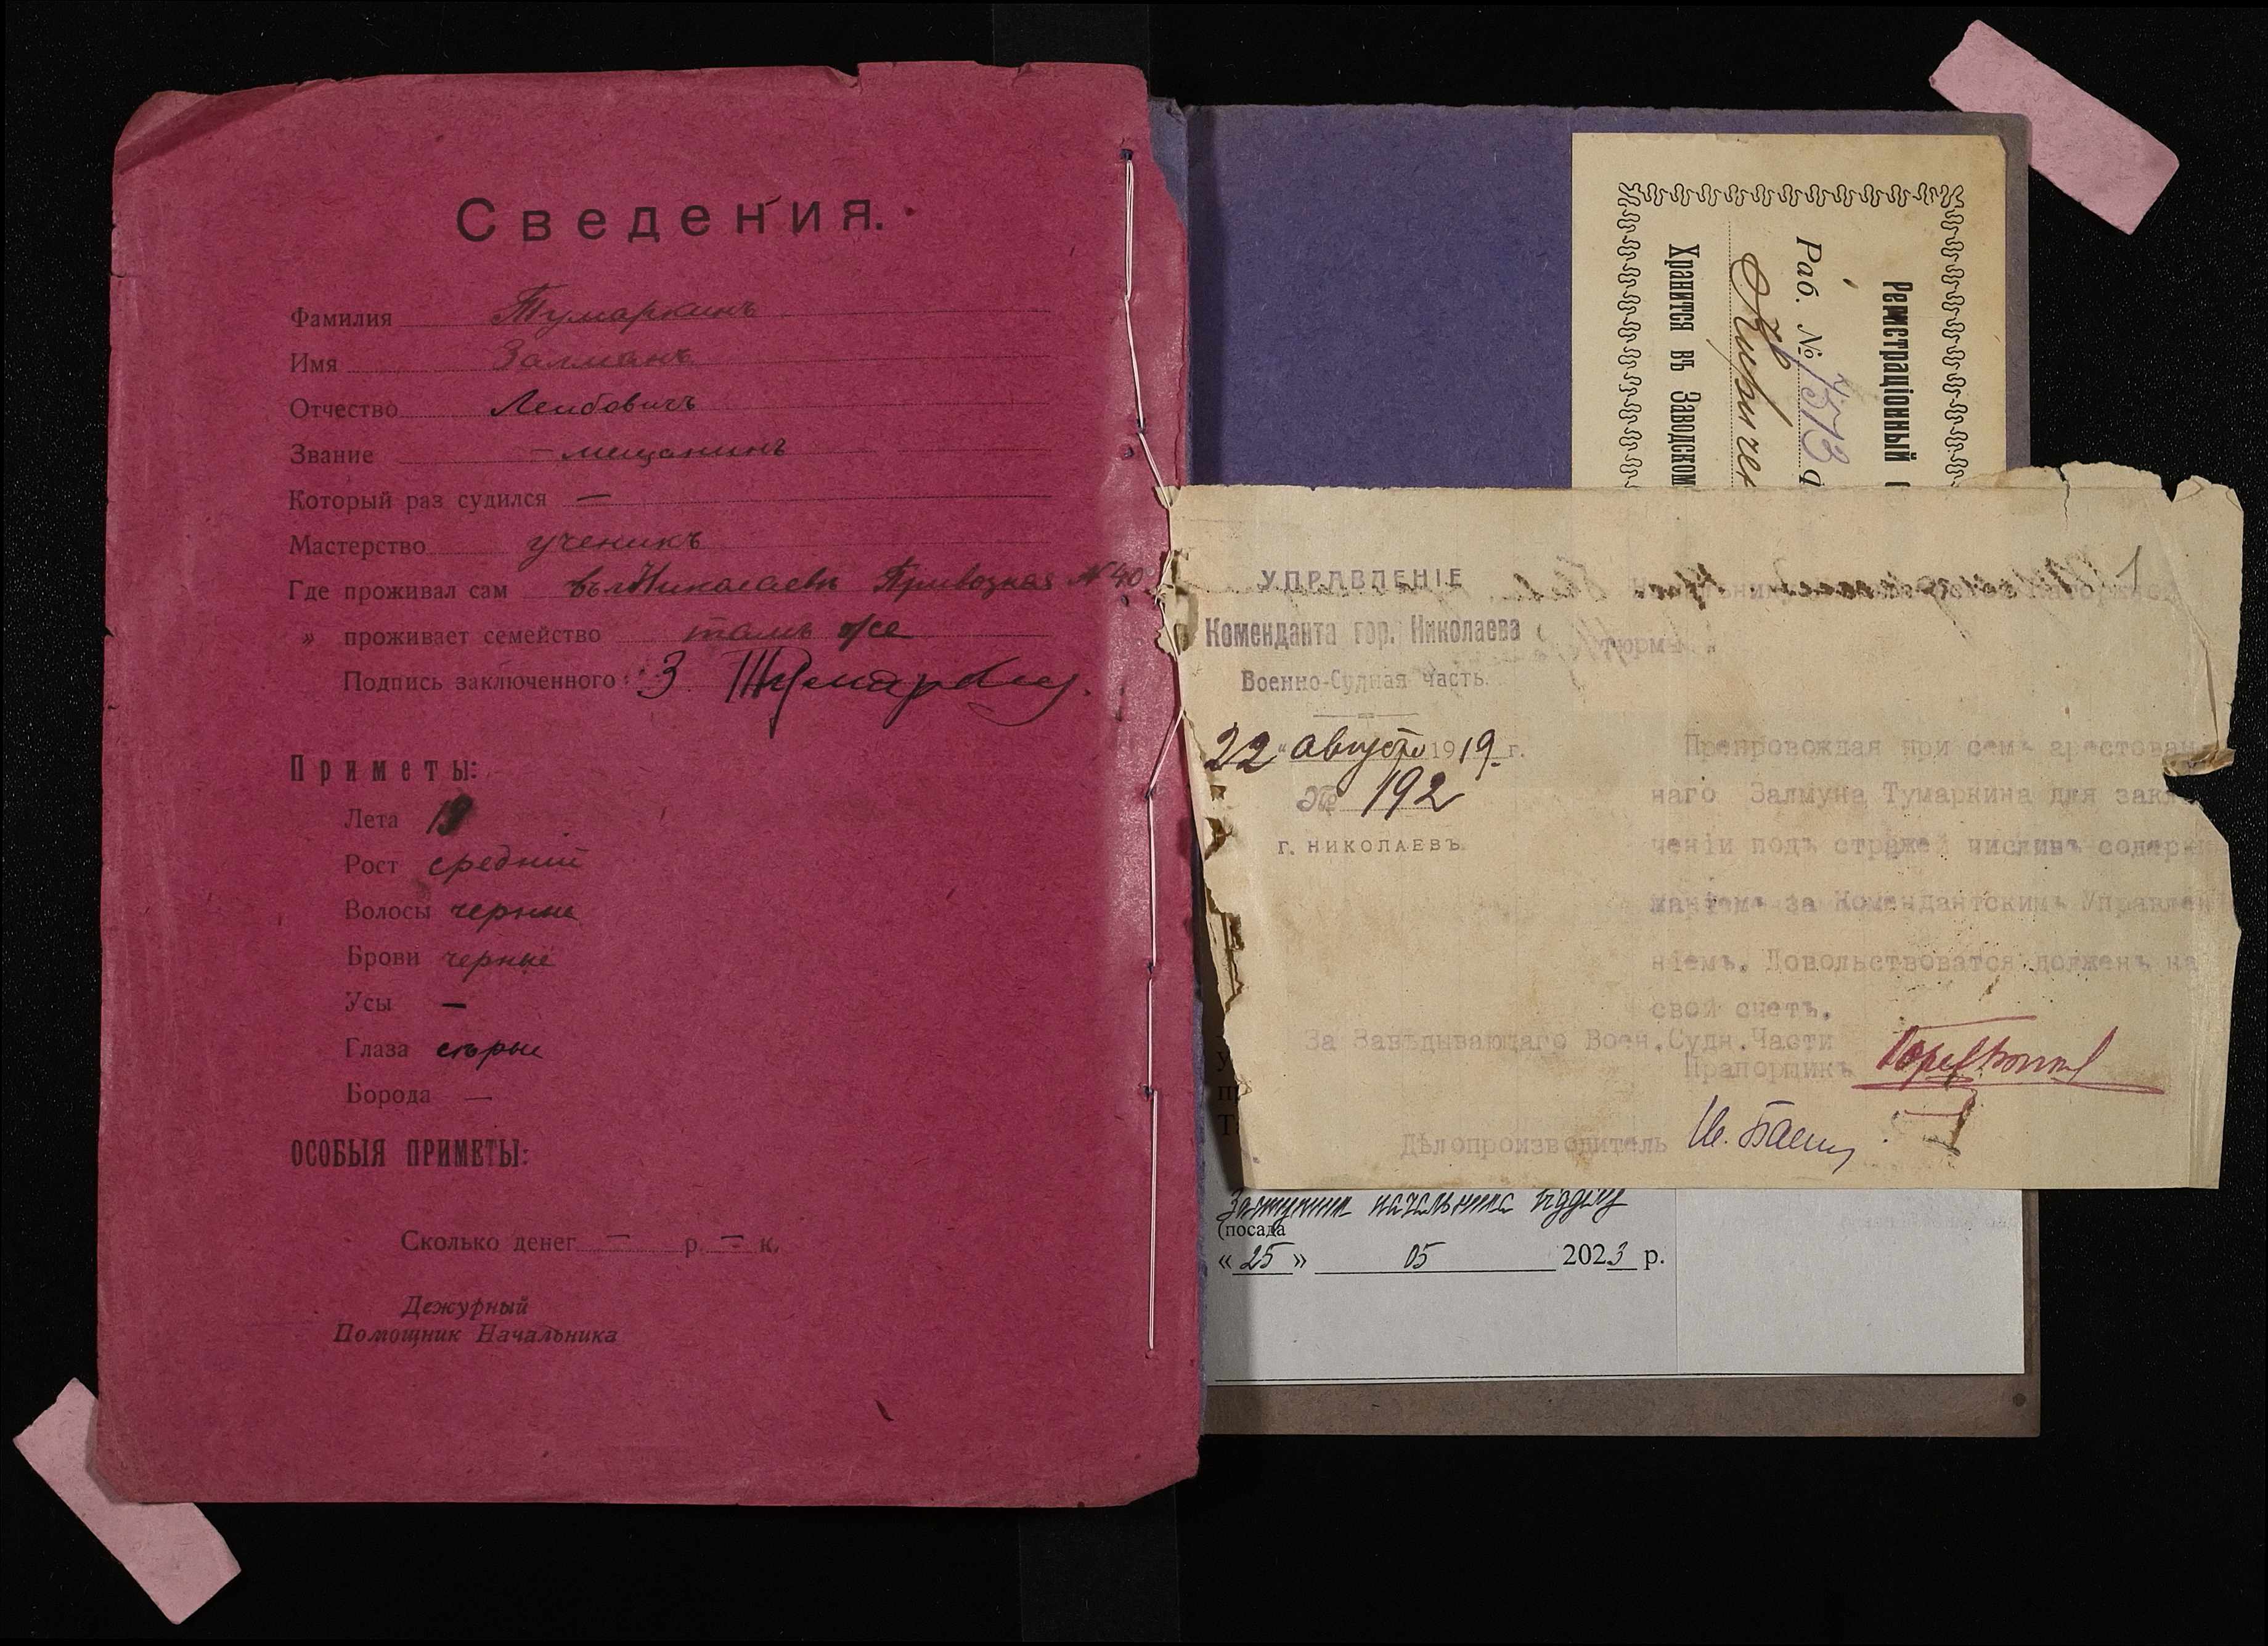 Сведения.
Фамилия Тумаркинъ
Имя Залманъ
Отчество Лейбовичъ
Звание — мещанинъ
Который раз судился —
Мастерство ученикъ
Где проживал сам въ г Николаевъ Привозная № 40
» проживает семейство тамъ же
Подпись заключенного З Тумаркин
Приметы:
Лета 19
Рост средний
Волосы черные
Брови черные
Усы —
Глаза сѣрые
Борода —
ОСОБЫЯ ПРИМЕТЫ:
Сколько денег — р. — к.
Дежурный
Помощник Начальника
Регистраціонный
Раб. № 7573
Хранится въ Заводском
1
УПРАВЛЕНІЕ
Коменданта гор. Николаева
Военно-Судная часть.
22 августа 1919 г.
№ 192
г. НИКОЛАЕВЪ.
тюрьмы.
Препровождая при семъ арестован
наго Залмуна Тумаркина для заклю
ченіи подъ стражей числивъ содер
жаніемъ за Комендантскимъ Управлен
ніемъ. Довольствоватся долженъ на
свой счетъ.
За Завѣдывающаго Воен.Судн.Части
Прапорщикъ
Дѣлопроизводитель
Заступник начальника відділу
(посада
« 25 » 05 2023 р.